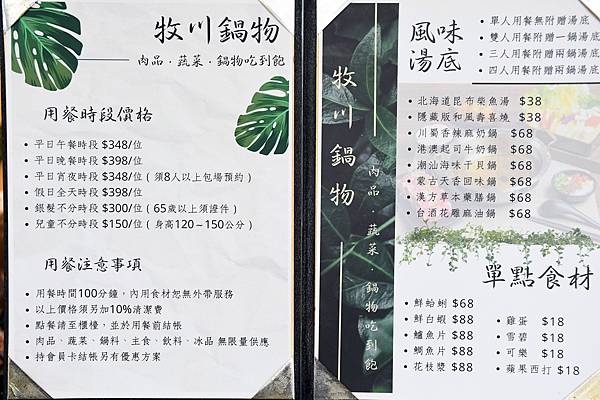 牧川鍋物
肉品．蔬菜．鍋物吃到飽
用餐時段價格
• 平日午餐時段 $348/位
• 平日晚餐時段 $398/位
• 平日宵夜時段 $348/位 ( 須8人以上包場預約 )
• 假日全天時段 $398/位
• 銀髮不分時段 $300/位 ( 65歲以上須證件 )
• 兒童不分時段 $150/位 ( 身高120－150公分 )
用餐注意事項
• 用餐時間100分鐘，內用食材恕無外帶服務
• 以上價格須另加10%清潔費
• 點餐請至櫃檯，並於用餐前結帳
• 肉品、蔬菜、鍋料、主食、飲料、冰品 無限量供應
• 持會員卡結帳另有優惠方案
牧川鍋物
肉品．蔬菜．鍋物吃到飽
風味
湯底
• 單人用餐無附贈湯底
• 雙人用餐附贈一鍋湯底
• 三人用餐附贈兩鍋湯底
• 四人用餐附贈兩鍋湯底
• 北海道昆布柴魚湯 $38
• 隱藏版和風壽喜燒 $38
• 川蜀香辣麻奶鍋 $68
• 港澳起司牛奶鍋 $68
• 潮汕海味干貝鍋 $68
• 蒙古天香回味鍋 $68
• 漢方草本藥膳鍋 $68
• 台酒花雕麻油鍋 $68
單點食材
• 鮮蛤蜊 $68
• 鮮白蝦 $88
• 鱸魚片 $88
• 鯛魚片 $88
• 花枝漿 $88
• 雞蛋 $18
• 雪碧 $18
• 可樂 $18
• 蘋果西打 $18